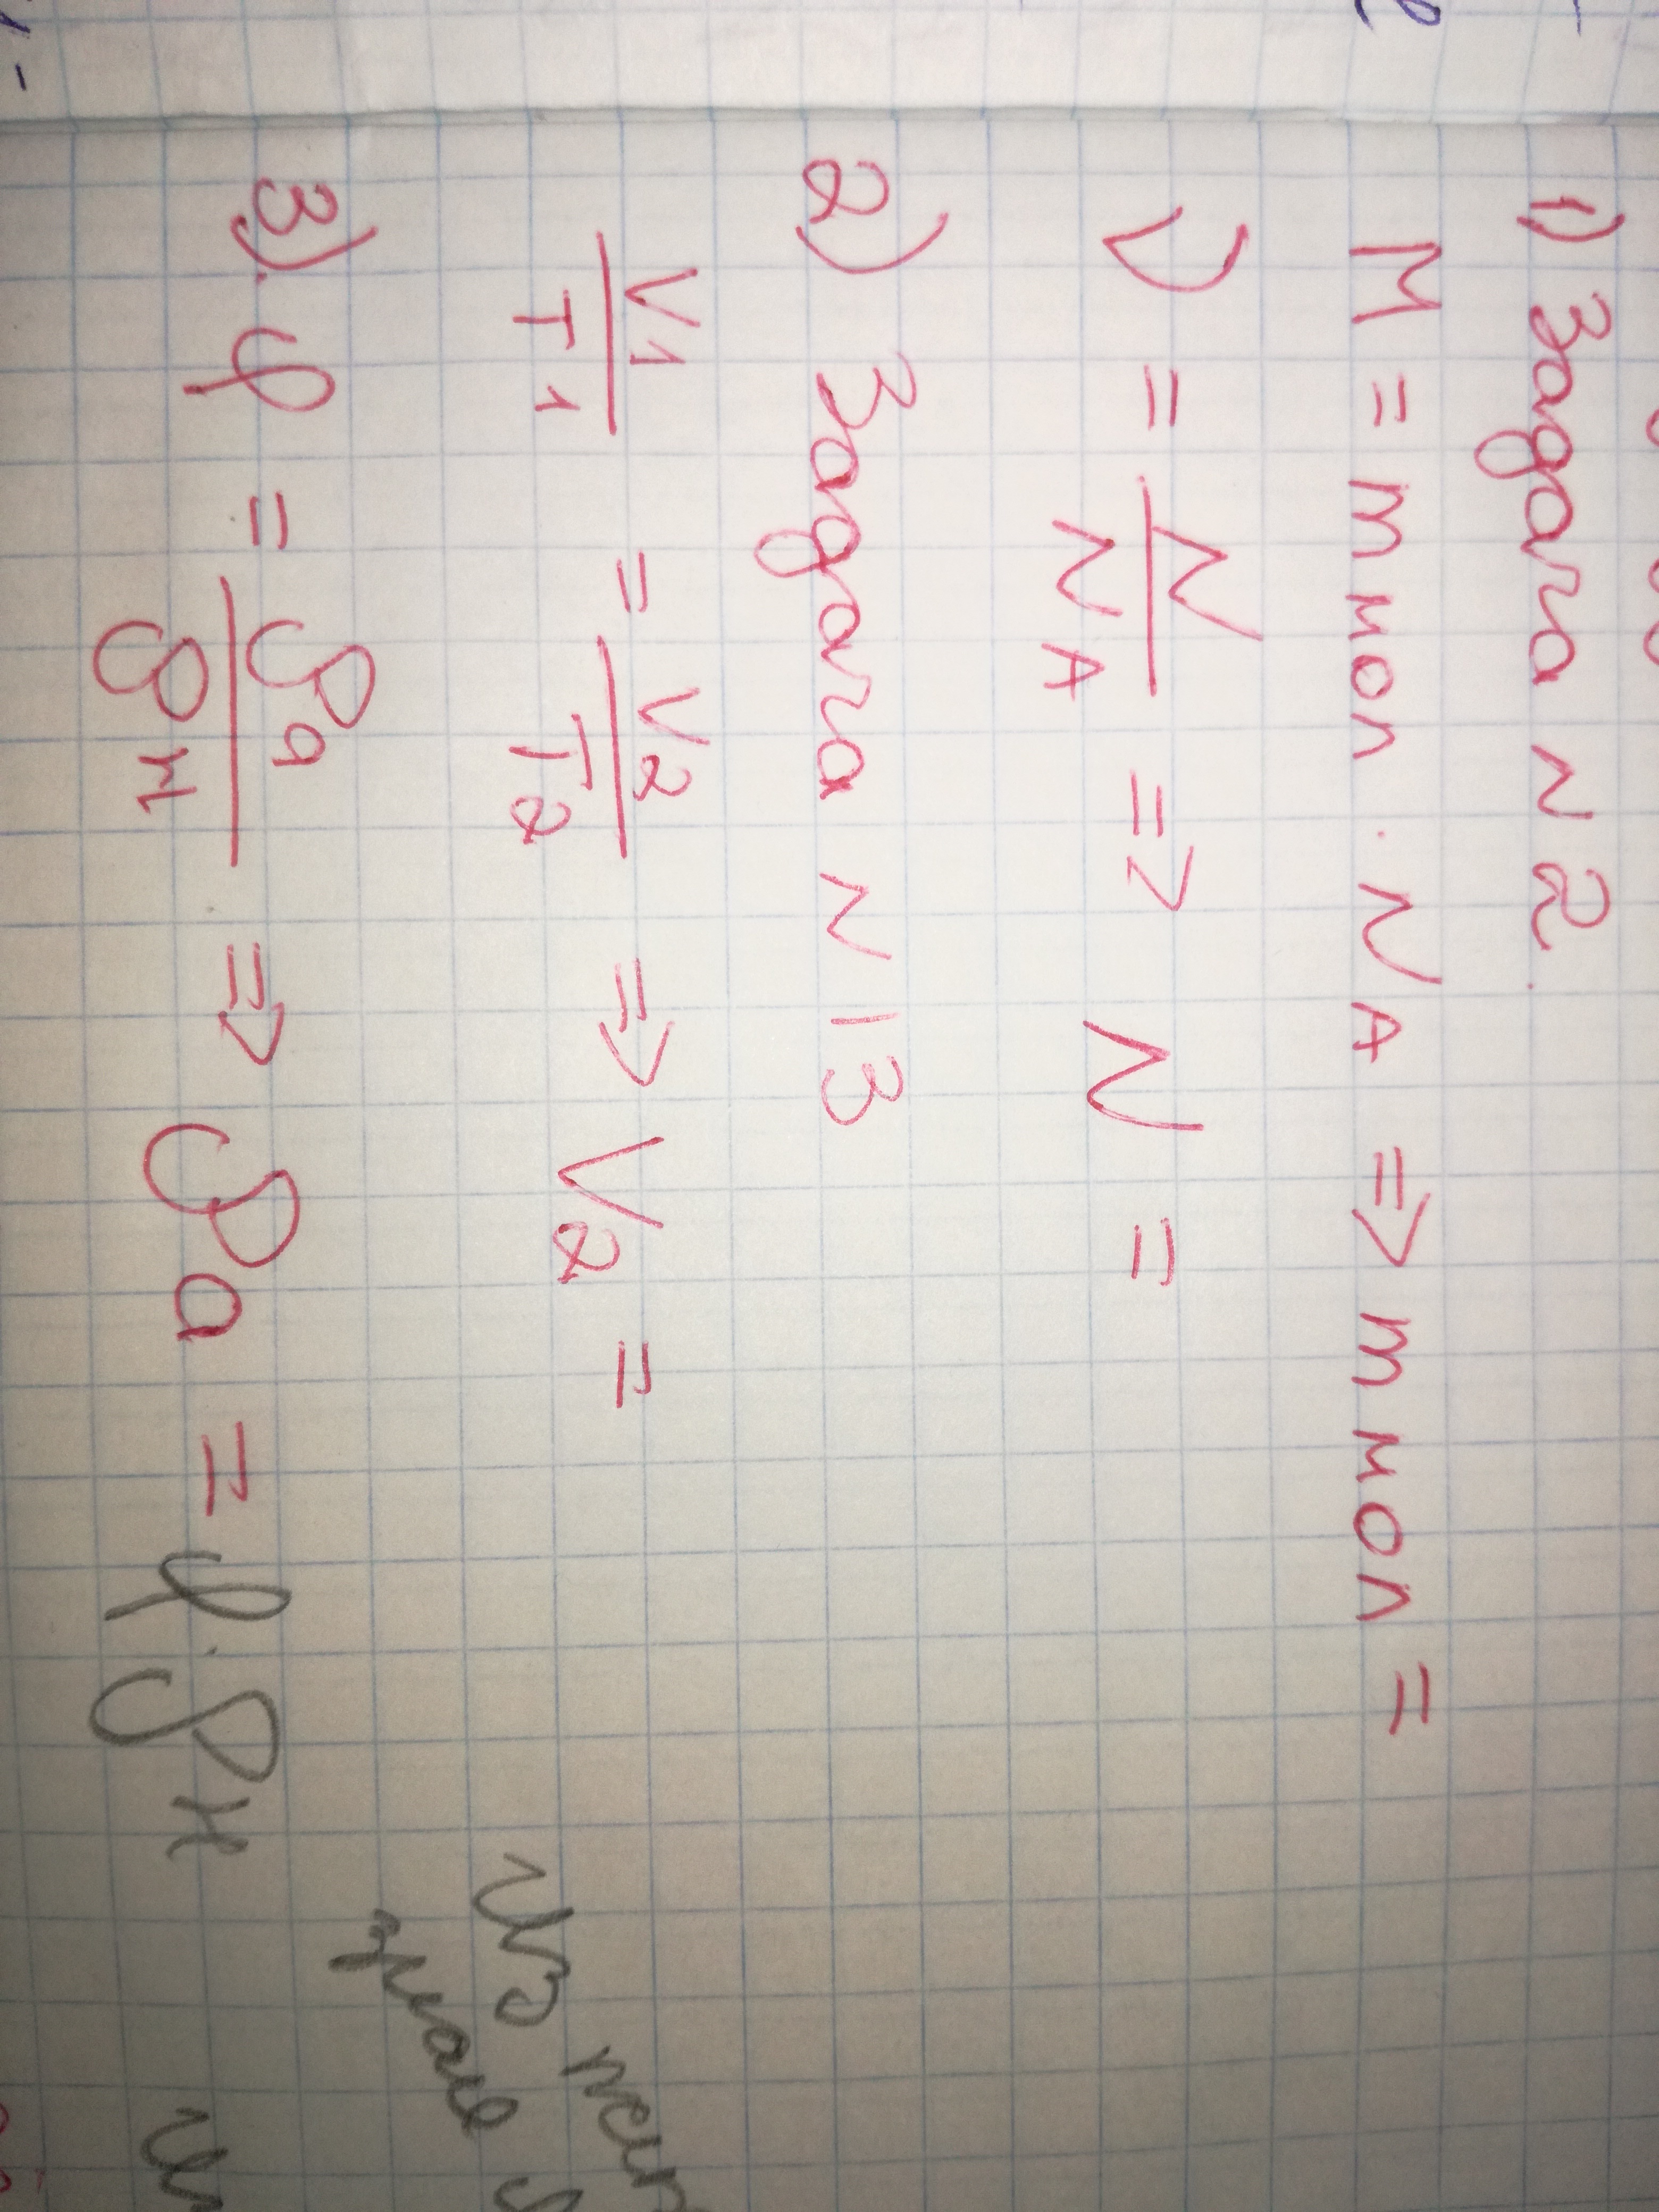 1) Задача N 2.
M = m мол · N A => m мол =
ν = N / N A => N =
2) Задача N 13
V1 / T1 = V2 / T2 => V2 =
3). φ = ρa / ρн => ρa = φ · ρн
Из